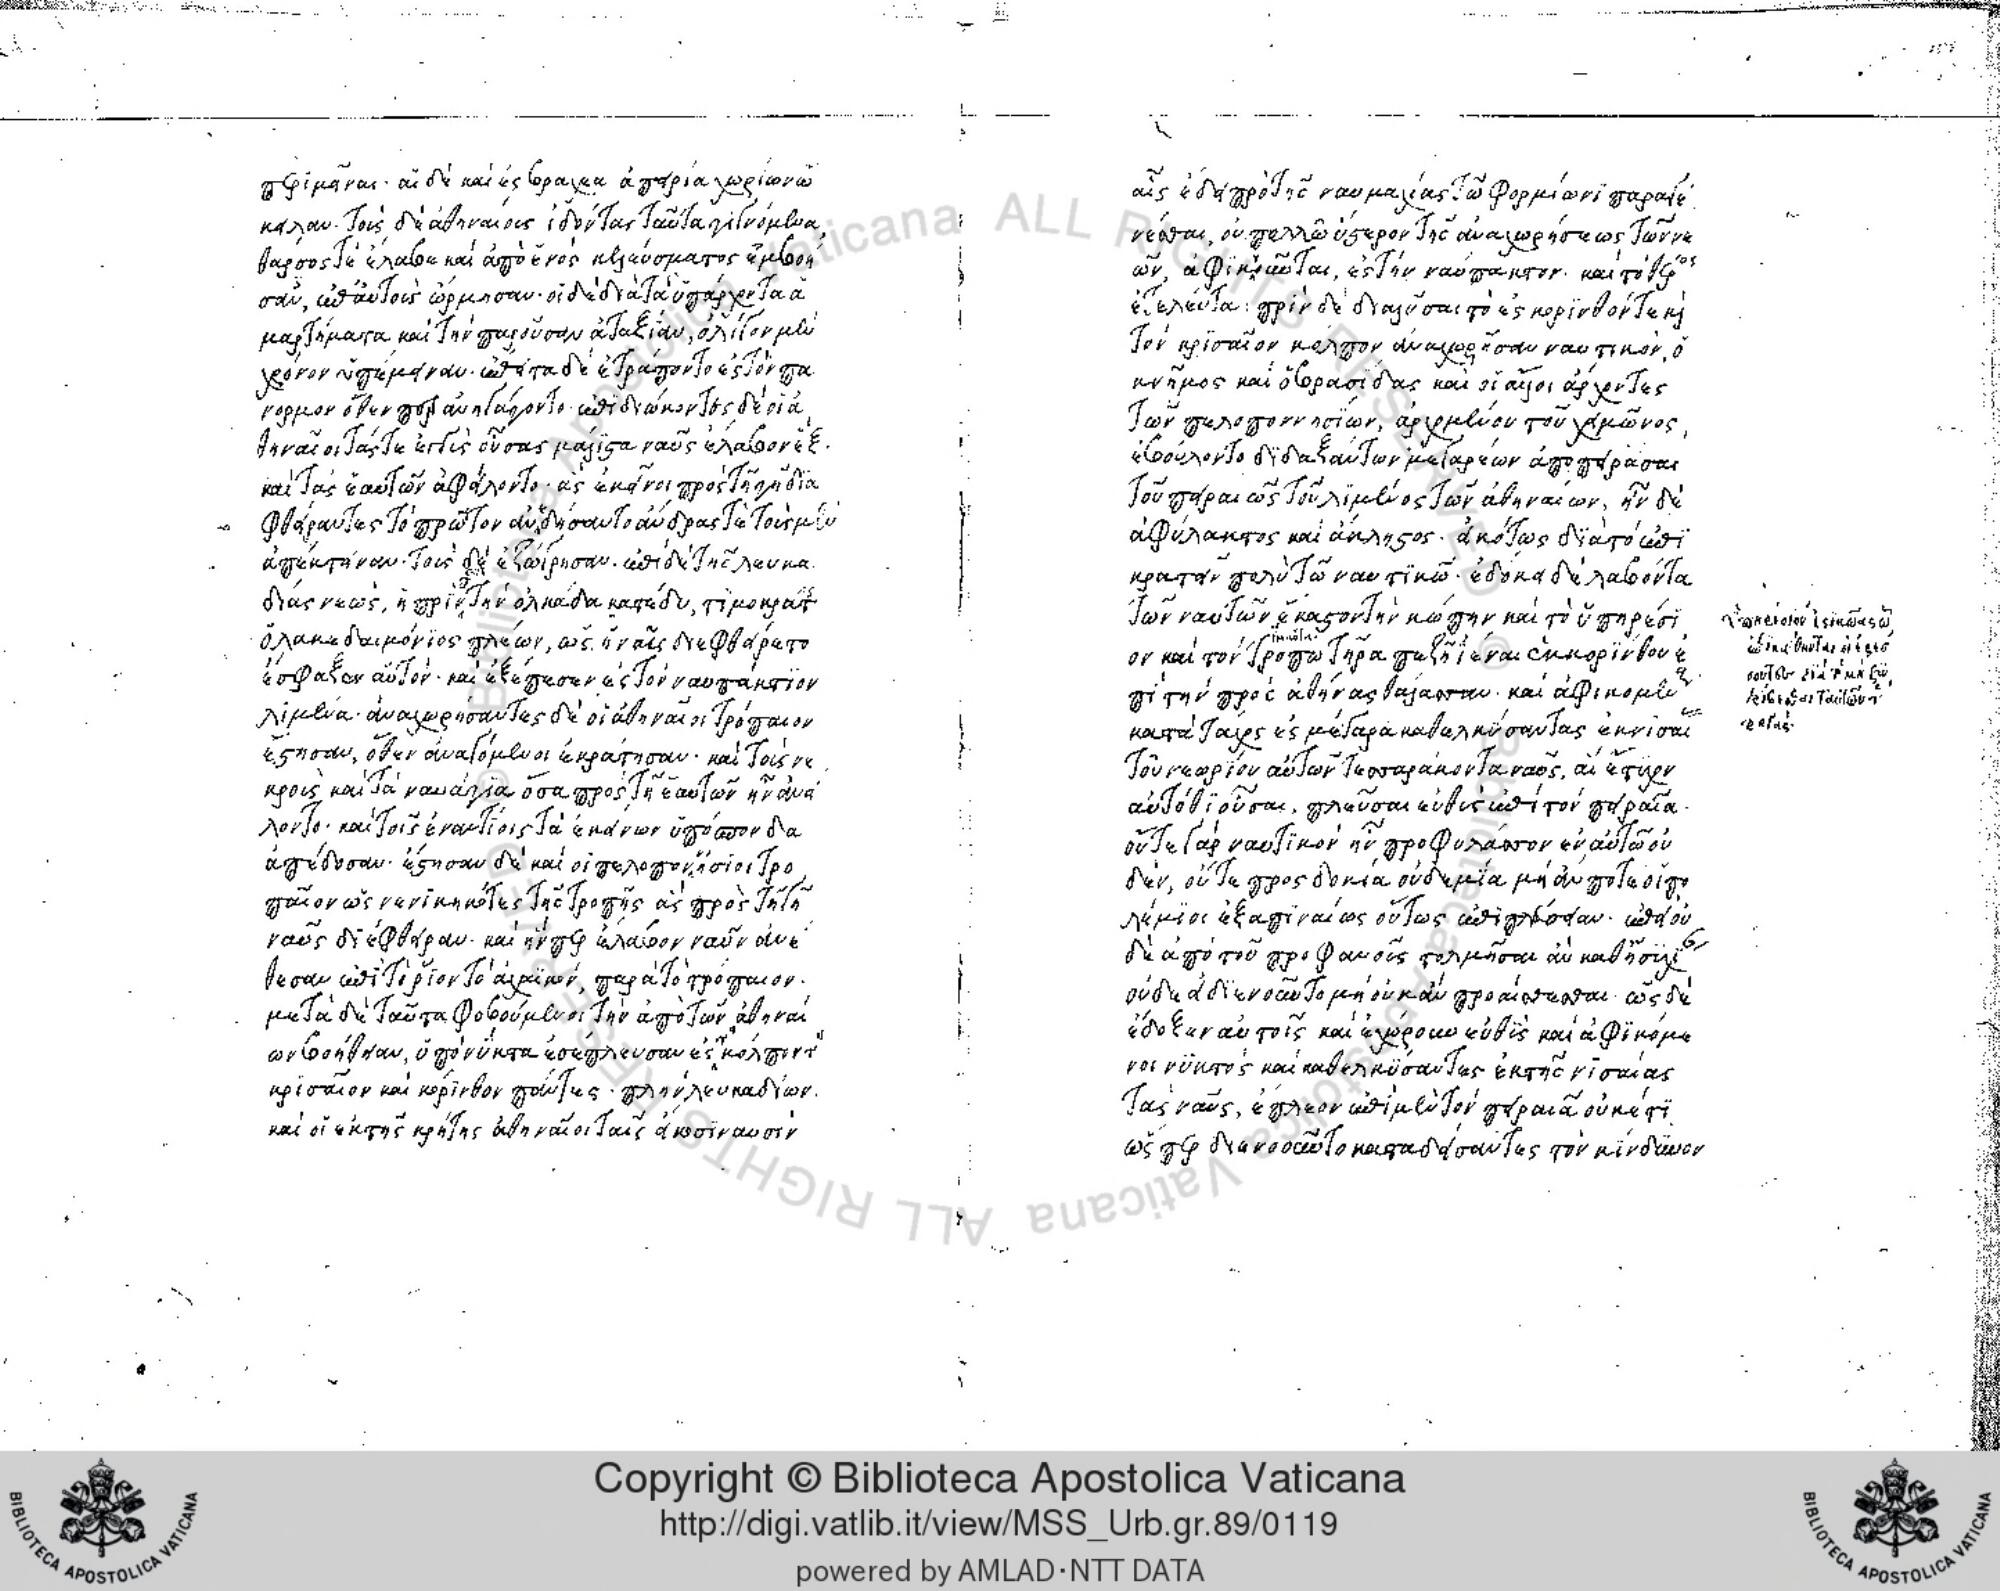 περιμεῖναι· αἱ δὲ καὶ ἐς βράχεα ἀπειρία χωρίων ὤ
κειλαν· τοὺς δὲ ἀθηναίους ἰδόντας ταῦτα γιγνόμενα,
θάρσος τὲ ἔλαβε καὶ ἀπὸ ἑνὸς κελεύσματος ἐμβοή
σαντες, ἐπ' αὐτοὺς ὥρμησαν· οἱ δὲ διὰ τὰ ὑπάρχοντα ἁ
μαρτήματα καὶ τὴν παροῦσαν ἀταξίαν, ὀλίγον μὲν
χρόνον ὑπέμειναν· ἔπειτα δὲ ἐτράποντο ἐς τὸν πά
νορμον ὅθεν περ ἀνηγάγοντο· ἐπιδιώκοντες δὲ οἱ ἀ
θηναῖοι τάς τε ἐγγὺς οὔσας μάλιστα ναῦς ἔλαβον ἓξ·
καὶ τὰς ἑαυτῶν ἀφείλοντο· ἃς ἐκεῖνοι πρὸς τῇ γῇ δια
φθείραντες τὸ πρῶτον ἀνεδήσαντο ἄνδρας τὲ τοὺς μὲν
ἀπέκτειναν· τοὺς δὲ ἐζώγρησαν· ἐπὶ δὲ τῆς λευκα
δίας νεὼς, ἣ περὶ τὴν ὁλκάδα κατέδυ, τιμοκράτης
ὁ λακεδαιμόνιος πλέων, ὡς ἡ ναῦς διεφθείρετο
ἔσφαξεν αὑτόν· καὶ ἐξέπεσεν ἐς τὸν ναυπάκτιον
λιμένα· ἀναχωρήσαντες δὲ οἱ ἀθηναῖοι τρόπαιον
ἔστησαν, ὅθεν ἀναγόμενοι ἐκράτησαν· καὶ τοὺς νε
κροὺς καὶ τὰ ναυάγια ὅσα πρὸς τῇ ἑαυτῶν ἦν ἀνεί
λοντο· καὶ τοῖς ἐναντίοις τὰ ἐκείνων ὑπόσπονδα
ἀπέδοσαν· ἔστησαν δὲ καὶ οἱ πελοποννήσιοι τρο
παῖον ὡς νενικηκότες τῆς τροπῆς ἃς πρὸς τῇ γῇ
ναῦς διέφθειραν· καὶ ἥνπερ ἔλαβον ναῦν ἀνέ
θεσαν ἐπὶ τὸ ῥίον τὸ ἀχαϊκόν, παρὰ τὸ τρόπαιον·
μετὰ δὲ ταῦτα φοβούμενοι τὴν ἀπὸ τῶν ἀθηναί
ων βοήθειαν, ὑπὸ νύκτα ἐσέπλευσαν ἐς κόλπον τὸν
κρισαῖον καὶ κόρινθον πάντες· πλὴν λευκαδίων·
καὶ οἱ ἐκ τῆς κρήτης ἀθηναῖοι ταῖς εἴκοσι ναυσὶν
αἷς ἔδει πρὸ τῆς ναυμαχίας τῷ φορμίωνι παραγε
νέσθαι, οὐ πολλῷ ὕστερον τῆς ἀναχωρήσεως τῶν νε
ῶν, ἀφικνοῦνται, ἐς τὴν ναύπακτον· καὶ τὸ θέρος
ἐτελεύτα· πρὶν δὲ διαλῦσαι τὸ ἐς κόρινθόν τε καὶ
τὸν κρισαῖον κόλπον ἀναχωρῆσαν ναυτικόν, ὁ
κνῆμος καὶ ὁ βρασίδας καὶ οἱ ἄλλοι ἄρχοντες
τῶν πελοποννησίων, ἀρχομένου τοῦ χειμῶνος,
ἐβούλοντο διδαξάντων μεγαρέων ἀποπειρᾶσαι
τοῦ πειραιῶς τοῦ λιμένος τῶν ἀθηναίων, ἦν δὲ
ἀφύλακτος καὶ ἄκλῃστος· εἰκότως διὰ τὸ ἐπι
κρατεῖν πολὺ τῷ ναυτικῷ· ἐδόκει δὲ λαβόντα
τῶν ναυτῶν ἕκαστον τὴν κώπην καὶ τὸ ὑπηρέσι
ον καὶ τὸν τροπωτῆρα πεζῇ ἰέναι ἐκ κορίνθου ἐ
πὶ τὴν πρὸς ἀθήνας θάλασσαν· καὶ ἀφικομένους
κατὰ τάχος ἐς μέγαρα καθελκύσαντας ἐκ νισαίας
τοῦ νεωρίου αὐτῶν τεσσαράκοντα ναῦς, αἳ ἔτυχον
αὐτόθι οὖσαι, πλεῦσαι εὐθὺς ἐπὶ τὸν πειραιᾶ·
οὔτε γὰρ ναυτικὸν ἦν προφυλάσσον ἐν αὐτῷ οὐ
δὲν, οὔτε προσδοκία οὐδεμία μὴ ἄν ποτε οἱ πο
λέμιοι ἐξαπιναίως οὕτως ἐπιπλεύσειαν· ἐπεὶ οὐ
δὲ ἀπὸ τοῦ προφανοῦς τολμῆσαι ἂν καθ' ἡσυχίαν
οὐδ' εἰ διενοοῦντο μὴ οὐκ ἂν προαισθέσθαι· ὡς δὲ
ἔδοξεν αὐτοῖς καὶ ἐχώρουν εὐθὺς καὶ ἀφικόμε
νοι νυκτὸς καὶ καθελκύσαντες ἐκ τῆς νισαίας
τὰς ναῦς, ἔπλεον ἐπὶ μὲν τὸν πειραιᾶ οὐκέτι
ὥσπερ διενοοῦντο καταδείσαντες τὸν κίνδυνον
Copyright © Biblioteca Apostolica Vaticana
http://digi.vatlib.it/view/MSS_Urb.gr.89/0119
powered by AMLAD·NTT DATA
BIBLIOTECA APOSTOLICA VATICANA
BIBLIOTECA APOSTOLICA VATICANA